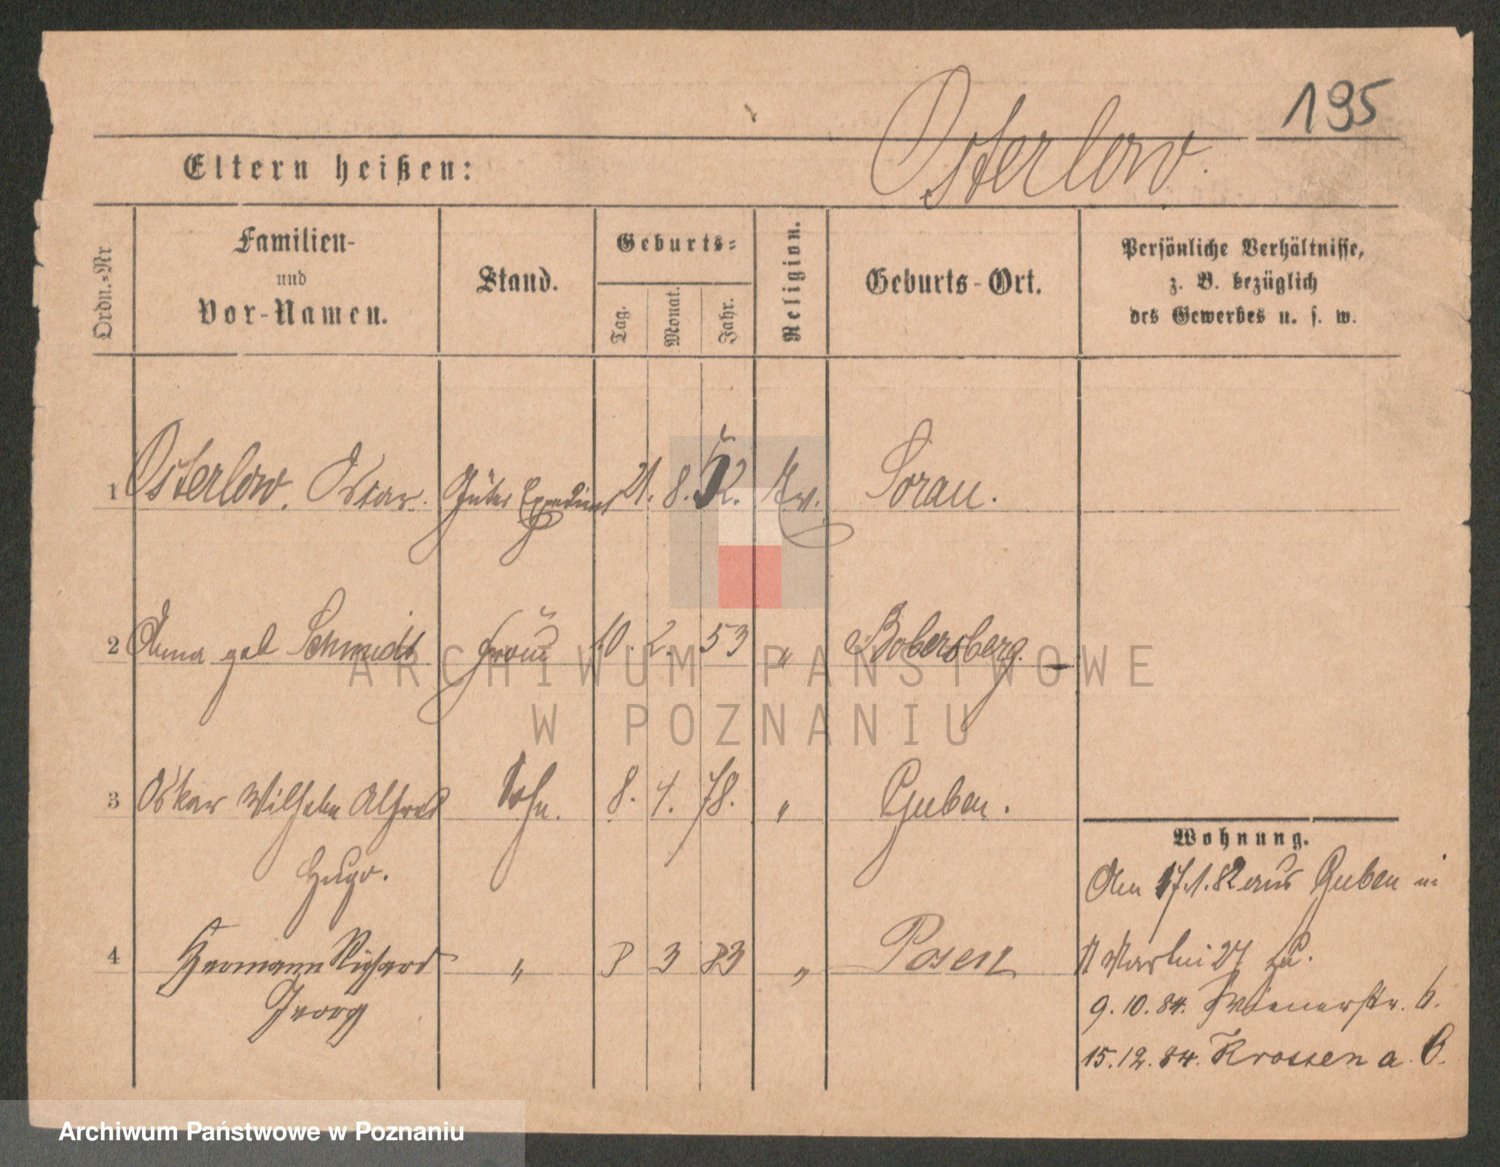 195
Osterlow.
Eltern heißen:
Ordn.-Nr
Familien-
und
Vor-Namen.
Stand.
Geburts-
Tag.
Monat.
Jahr.
Religion.
Geburts-Ort.
Persönliche Verhältnisse,
z. B. bezüglich
des Gewerbes u. s. w.
1 Osterlow. Oscar. Güter Expedient 21. 8. 52. Ev. Sorau.
2 Anna geb Schmidt Frau 10. 2. 53 " Bobersberg.
3 Oskar Wilhelm Alfred Sohn. 8. 1. 78. " Guben.
Hugo.
4 Hermann Richard " 8 3 83 " Posen
Georg
Wohnung.
Am 17.1.82 aus Guben in
St Martin 27 zu.
9. 10. 84. Wienerstr. 6.
15. 12. 84. Krossen a. O.
ARCHIWUM PAŃSTWOWE
W POZNANIU
Archiwum Państwowe w Poznaniu